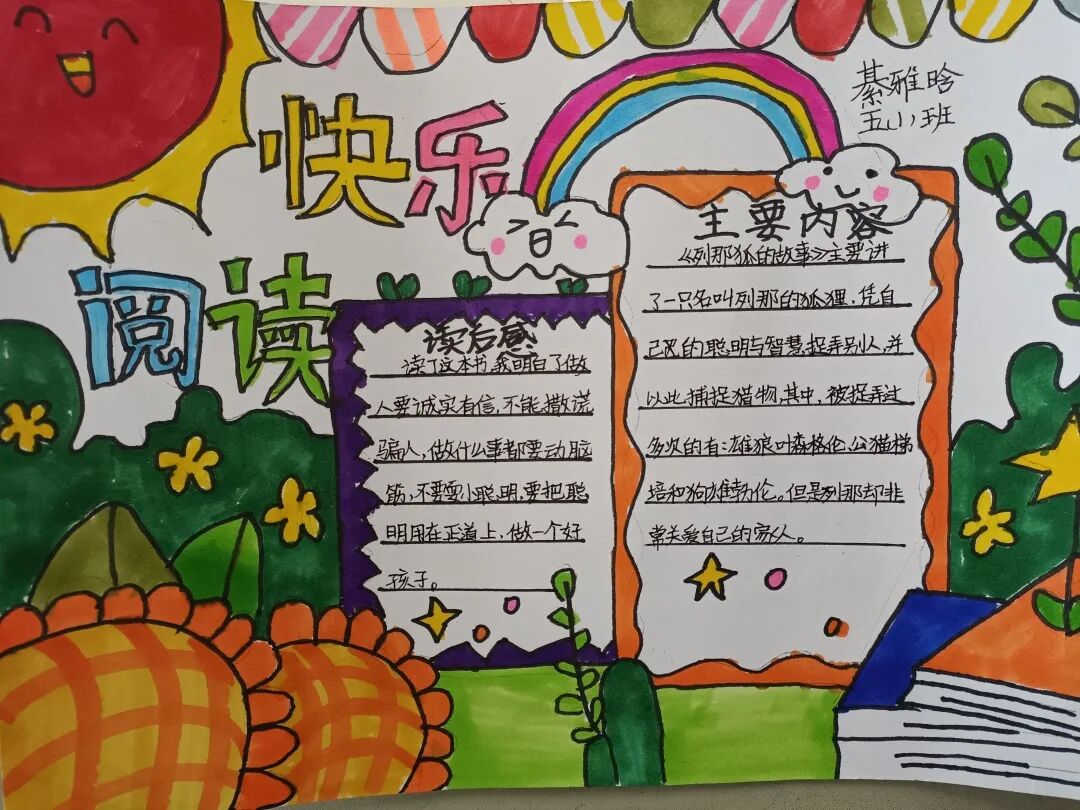 快乐
阅读
綦雅晗
五小1班
读后感
读了这本书,我明白了做
人要诚实有信,不能撒谎
骗人,做什么事都要动脑
筋,不要耍小聪明,要把聪
明用在正道上,做一个好
孩子。
主要内容
《列那狐的故事》主要讲
了一只名叫列那的狐狸,凭自
己的聪明与智慧捉弄别人,并
以此捕捉猎物,其中,被捉弄过
多次的有:雄狼叶森格伦、公猫梯
培和狗雄勃伦。但是列那却非
常关爱自己的家人。